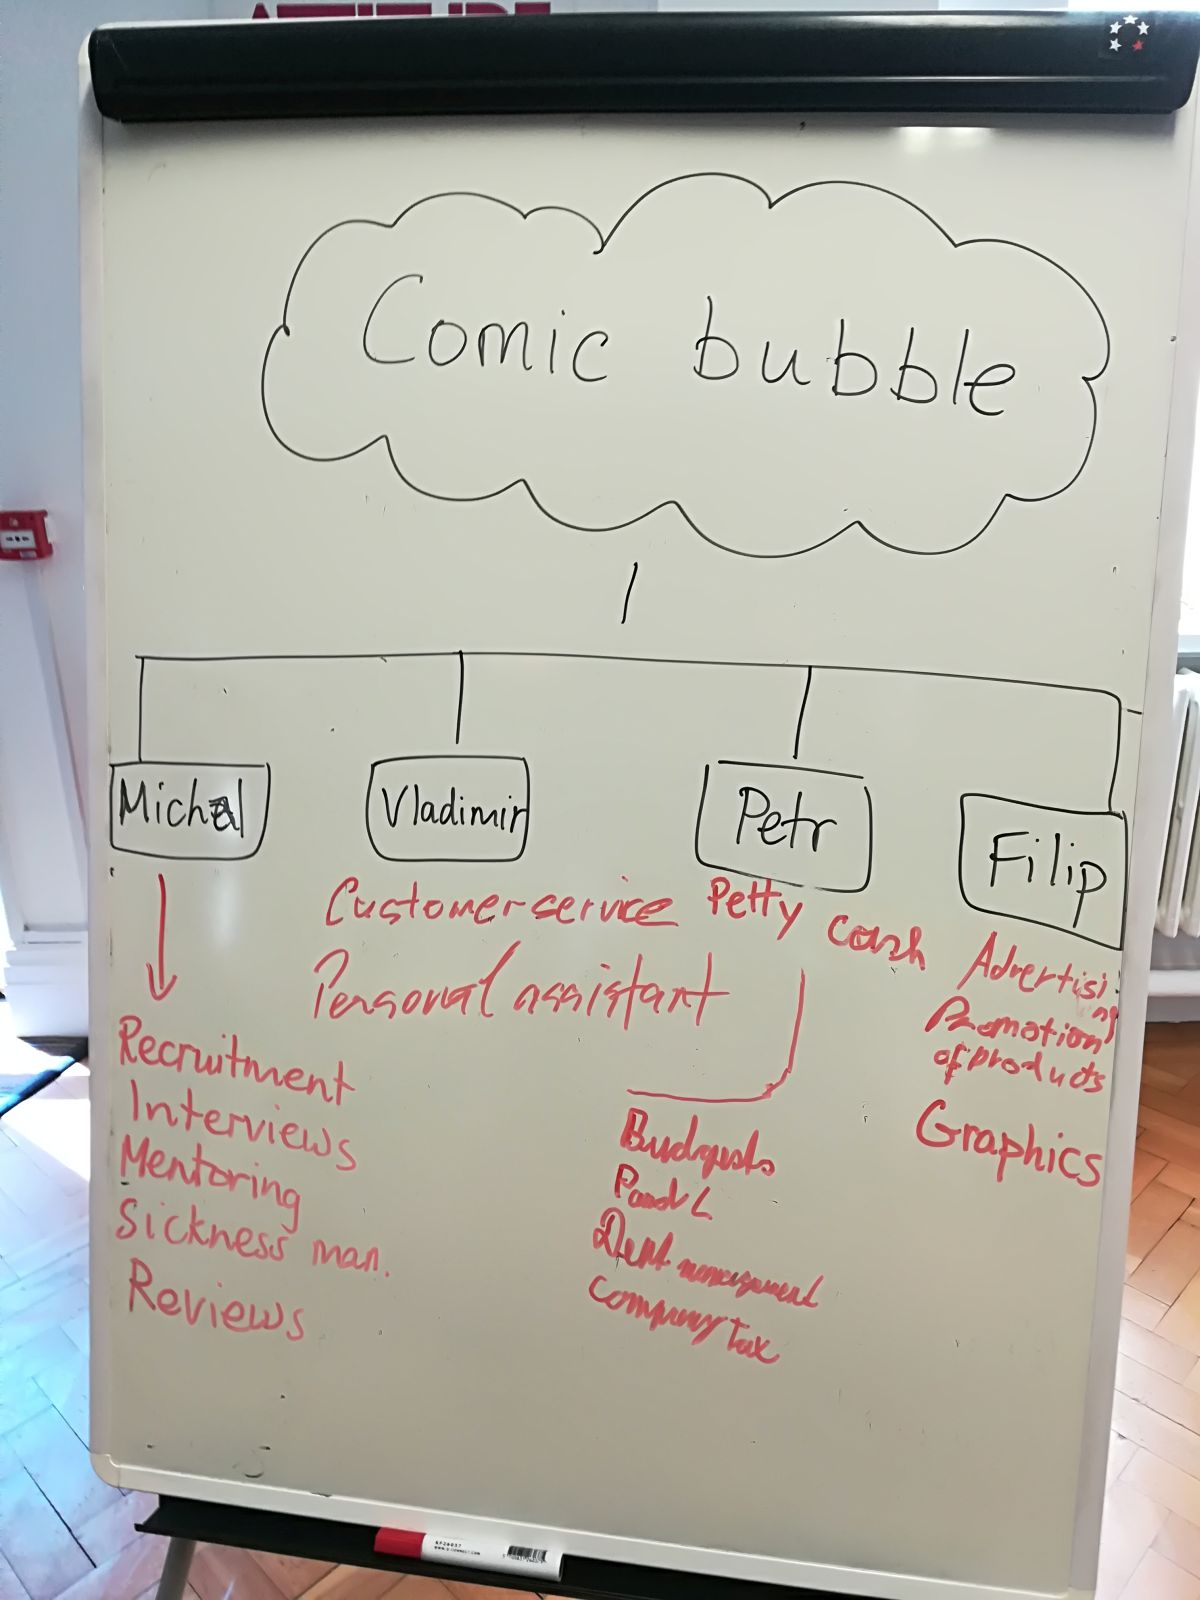 ATTITUDE
Comic bubble
Michal
Vladimir
Petr
Filip
Customer service
Personal assistant
Petty cash
Advertising
Promotion
of products
Graphics
Recruitment
Interviews
Mentoring
Sickness man.
Reviews
Budgets
P and L
management
Company Tax
KF26037